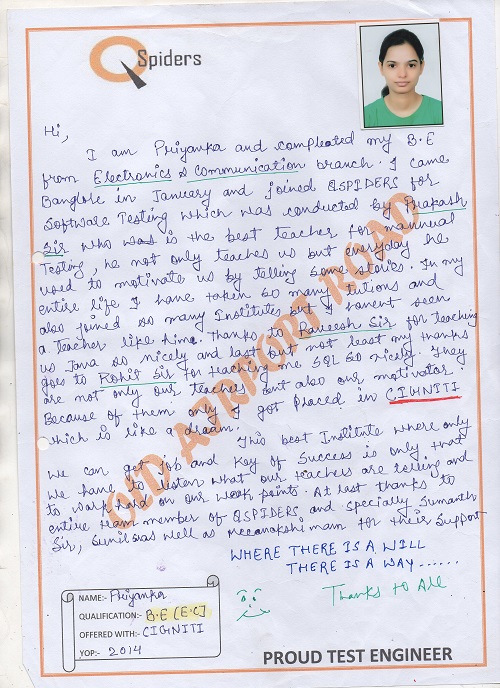 Q Spiders
Hi,
I am Priyanka and compleated my B.E
from Electronics & Communication branch. I came
Banglore in January and joined QSPIDERS for
Software Testing which was conducted by Prakash
Sir who was is the best teacher for mannual
Testing, he not only teaches us but everyday he
used to motivate us by telling some stories. In my
entire life I have taken so many tutions and
also joined so many Institutes but I havent seen
a teacher like him. Thanks to Raveesh Sir for teaching
us Java so nicely and last but not least my thanks
goes to Rohit Sir for teaching me SQL so nicely. They
are not only our teacher but also our motivator.
Because of them only I got placed in CIGNITI
which is like a dream.
This best Institute where only
we can get job and key of success is only that
we have to listen what our teachers are telling and
to work hard on our weak points. At last thanks to
entire team member of QSPIDERS and specially Sumanth
Sir, Sunil as well as meenakshi mam for their support
WHERE THERE IS A WILL
THERE IS A WAY......
Thanks to All
NAME:- Priyanka
QUALIFICATION:- B.E [E.C]
OFFERED WITH:- CIGNITI
YOP:- 2014
PROUD TEST ENGINEER
OLD AIRPORT ROAD